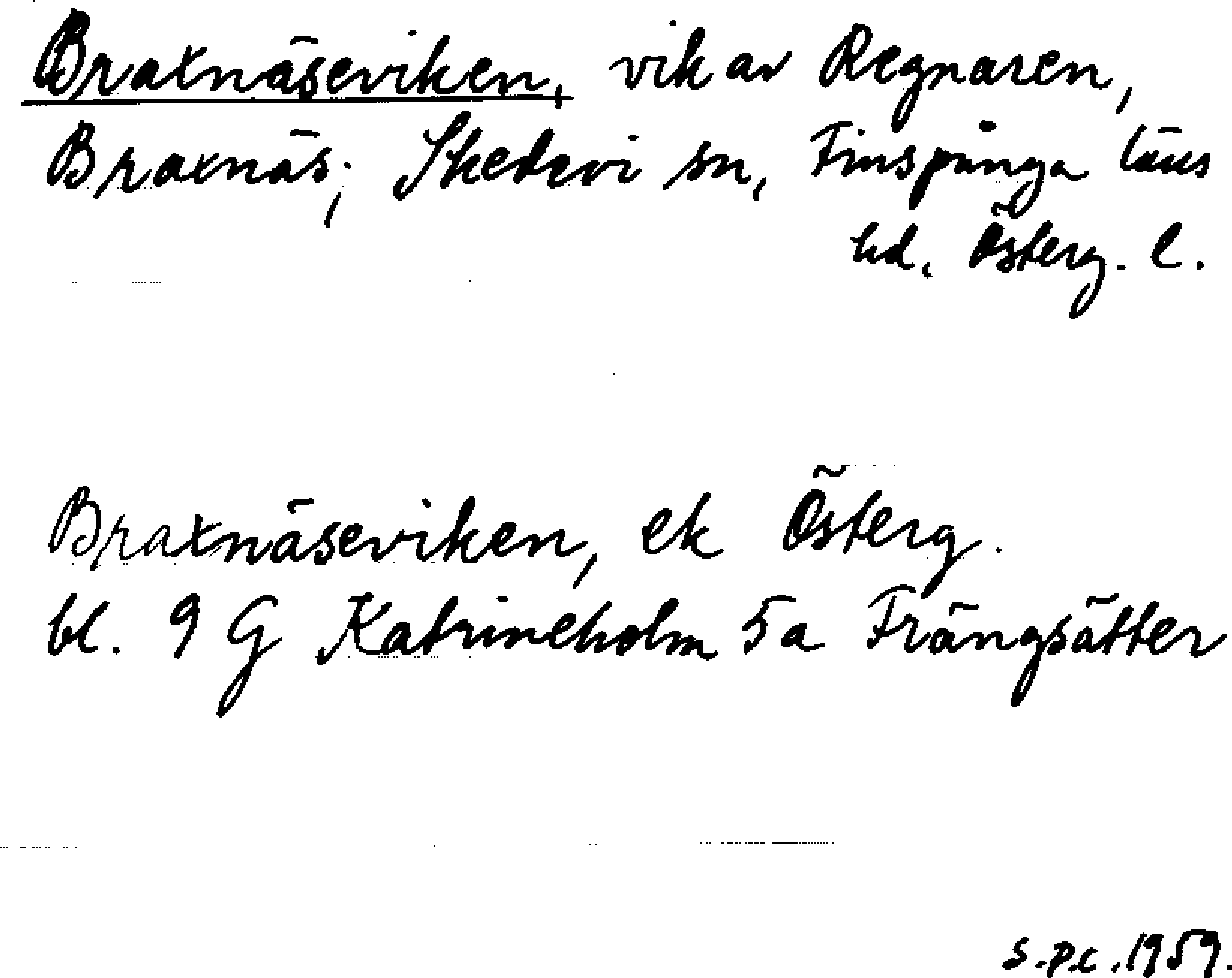 Braxnäseviken, vik av Regnaren,
Braxnäs; Skedevi sn, Finspånga läns
hd, Österg. l.
Braxnäseviken, ek Österg.
bl. 9 G Katrineholm 5a Frängsätter
S.P.C. 1959.